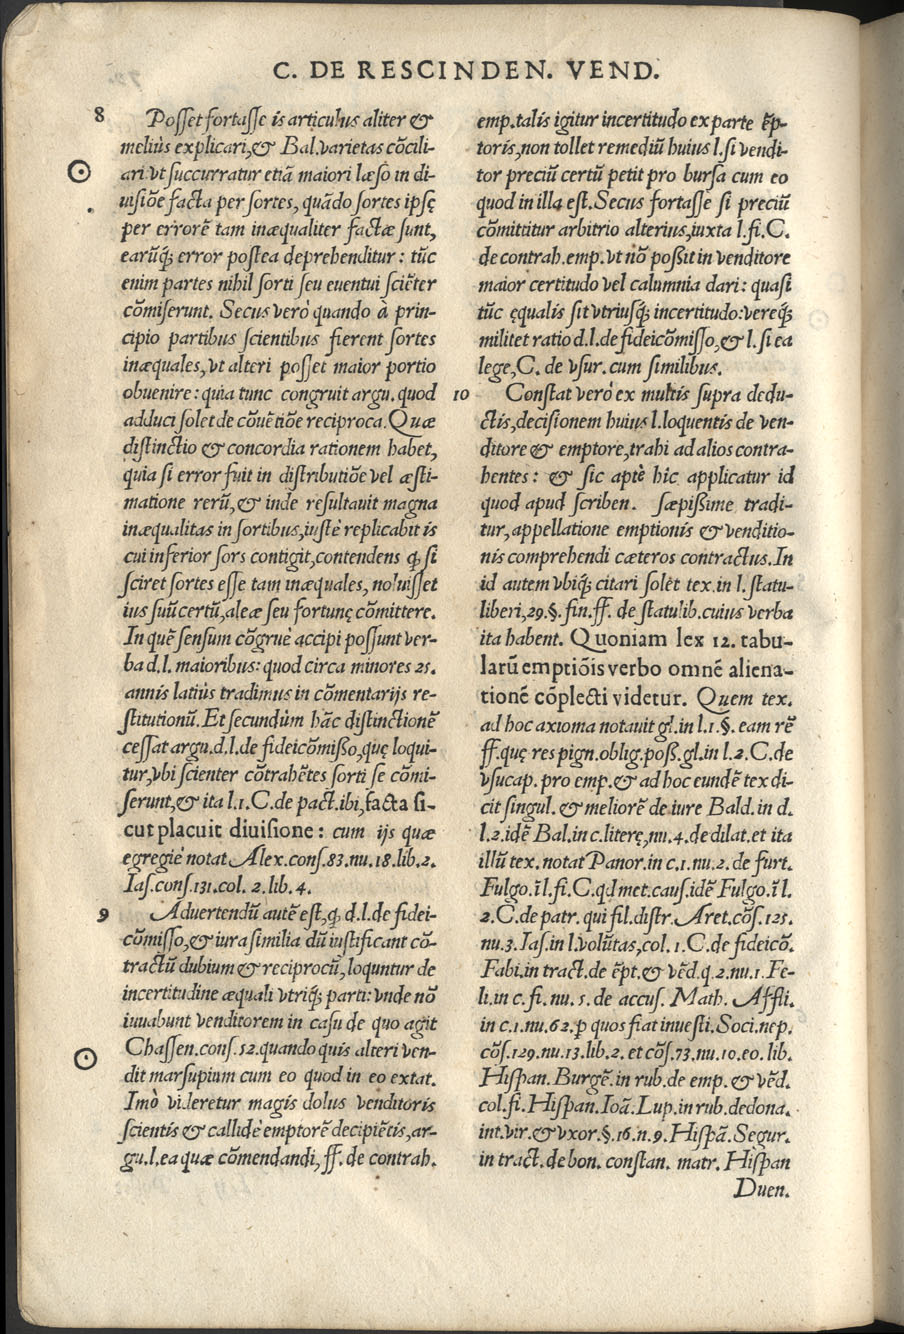 C. DE RESCINDEN. VEND.
8 Poſſet fortaſſe is articulus aliter &
meliùs explicari, & Bal. varietas cõcili-
ari vt ſuccurratur etiã maiori læſo in di-
uiſiõe facta per ſortes, quãdo ſortes ipſę
per errorẽ tam inæqualiter factæ ſunt,
earũq́; error poſtea deprehenditur: tũc
enim partes nihil ſorti ſeu euentui ſciẽter
cõmiſerunt. Secus verò quando à prin-
cipio partibus ſcientibus fierent ſortes
inæquales, vt alteri poſſet maior portio
obuenire: quia tunc congruit argu. quod
adduci ſolet de cõuẽtiõe reciproca. Quæ
diſtinctio & concordia rationem habet,
quia ſi error fuit in diſtributiõe vel æſti-
matione rerũ, & inde reſultauit magna
inæqualitas in ſortibus, iuſtè replicabit is
cui inferior ſors contigit, contendens q̃ ſi
ſciret ſortes eſſe tam inæquales, noluiſſet
ius ſuũ certũ, aleæ ſeu fortunę cõmittere.
In quẽ ſenſum cõgruè accipi poſſunt ver-
ba d. l. maioribus: quod circa minores 25.
annis latiùs tradimus in cõmentarijs re-
ſtitutionũ. Et ſecundùm hãc diſtinctionẽ
ceſſat argu. d. l. de fideicõmiſſo, quę loqui-
tur, vbi ſcienter cõtrahẽtes ſorti ſe cõmi-
ſerunt, & ita l. 1. C. de pact. ibi, facta ſi-
cut placuit diuiſione: cum ijs quæ
egregiè notat Alex. conſ. 83. nu. 18. lib. 2.
Iaſ. conſ. 131. col. 2. lib. 4.
9 Aduertendũ autẽ eſt, q̃ d. l. de fidei-
cõmiſſo, & iura ſimilia dũ iuſtificant cõ-
tractũ dubium & reciprocũ, loquntur de
incertitudine æquali vtriq́; parti: vnde nõ
iuuabunt venditorem in caſu de quo agit
Chaſſen. conſ. 52. quando quis alteri ven-
dit marſupium cum eo quod in eo extat.
Imò videretur magis dolus venditoris
ſcientis & callidè emptorẽ decipiẽtis, ar-
gu. l. ea quæ cõmendandi, ff. de contrah.
emp. talis igitur incertitudo ex parte ẽp-
toris, non tollet remediũ huius l. ſi vendi-
tor preciũ certũ petit pro burſa cum eo
quod in illa eſt. Secus fortaſſè ſi preciũ
cõmittitur arbitrio alterius, iuxta l. fi. C.
de contrah. emp. vt nõ poſſit in venditore
maior certitudo vel calumnia dari: quaſi
tũc ęqualis ſit vtriuſq́; incertitudo: vereq́;
militet ratio d. l. de fideicõmiſſo, & l. ſi ea
lege, C. de vſur. cum ſimilibus.
10 Conſtat verò ex multis ſupra dedu-
ctis, deciſionem huius l. loquentis de ven-
ditore & emptore, trahi ad alios contra-
hentes: & ſic aptè hic applicatur id
quod apud ſcriben. ſæpiſſime tradi-
tur, appellatione emptionis & venditio-
nis comprehendi cæteros contractus. In
id autem vbiq́; citari ſolet tex. in l. ſtatu-
liberi, 29. §. fin. ff. de ſtatulib. cuius verba
ita habent. Quoniam lex 12. tabu-
larũ emptiõis verbo omnẽ aliena-
tionẽ cõplecti videtur. Quem tex.
ad hoc axioma notauit gl. in l. 1. §. eam rẽ
ff. quę res pign. oblig. poſſ. gl. in l. 2. C. de
vſucap. pro emp. & ad hoc eundẽ tex di-
cit ſingul. & meliorẽ de iure Bald. in d.
l. 2. idẽ Bal. in c. literę, nu. 4. de dilat. et ita
illũ tex. notat Panor. in c. 1. nu. 2. de furt.
Fulgo. ĩ l. fi. C. qd met. cauſ. idẽ Fulgo. ĩ l.
2. C. de patr. qui fil. diſtr. Aret. cõſ. 125.
nu. 3. Iaſ. in l. volũtas, col. 1. C. de fideicõ.
Fabi. in tract. de ẽpt. & vẽd. q. 2. nu. 1. Fe-
li. in c. fi. nu. 5. de accuſ. Math. Affli.
in c. 1. nu. 62. ꝑ quos fiat inueſti. Soci. nep.
cõſ. 129. nu. 13. lib. 2. et cõſ. 73. nu. 10. eo. lib.
Hiſpan. Burgẽ. in rub. de emp. & vẽd.
col. fi. Hiſpan. Ioã. Lup. in rub. de dona.
int. vir. & vxor. §. 16. n. 9. Hiſpã. Segur.
in tract. de bon. conſtan. matr. Hiſpan
Duen.